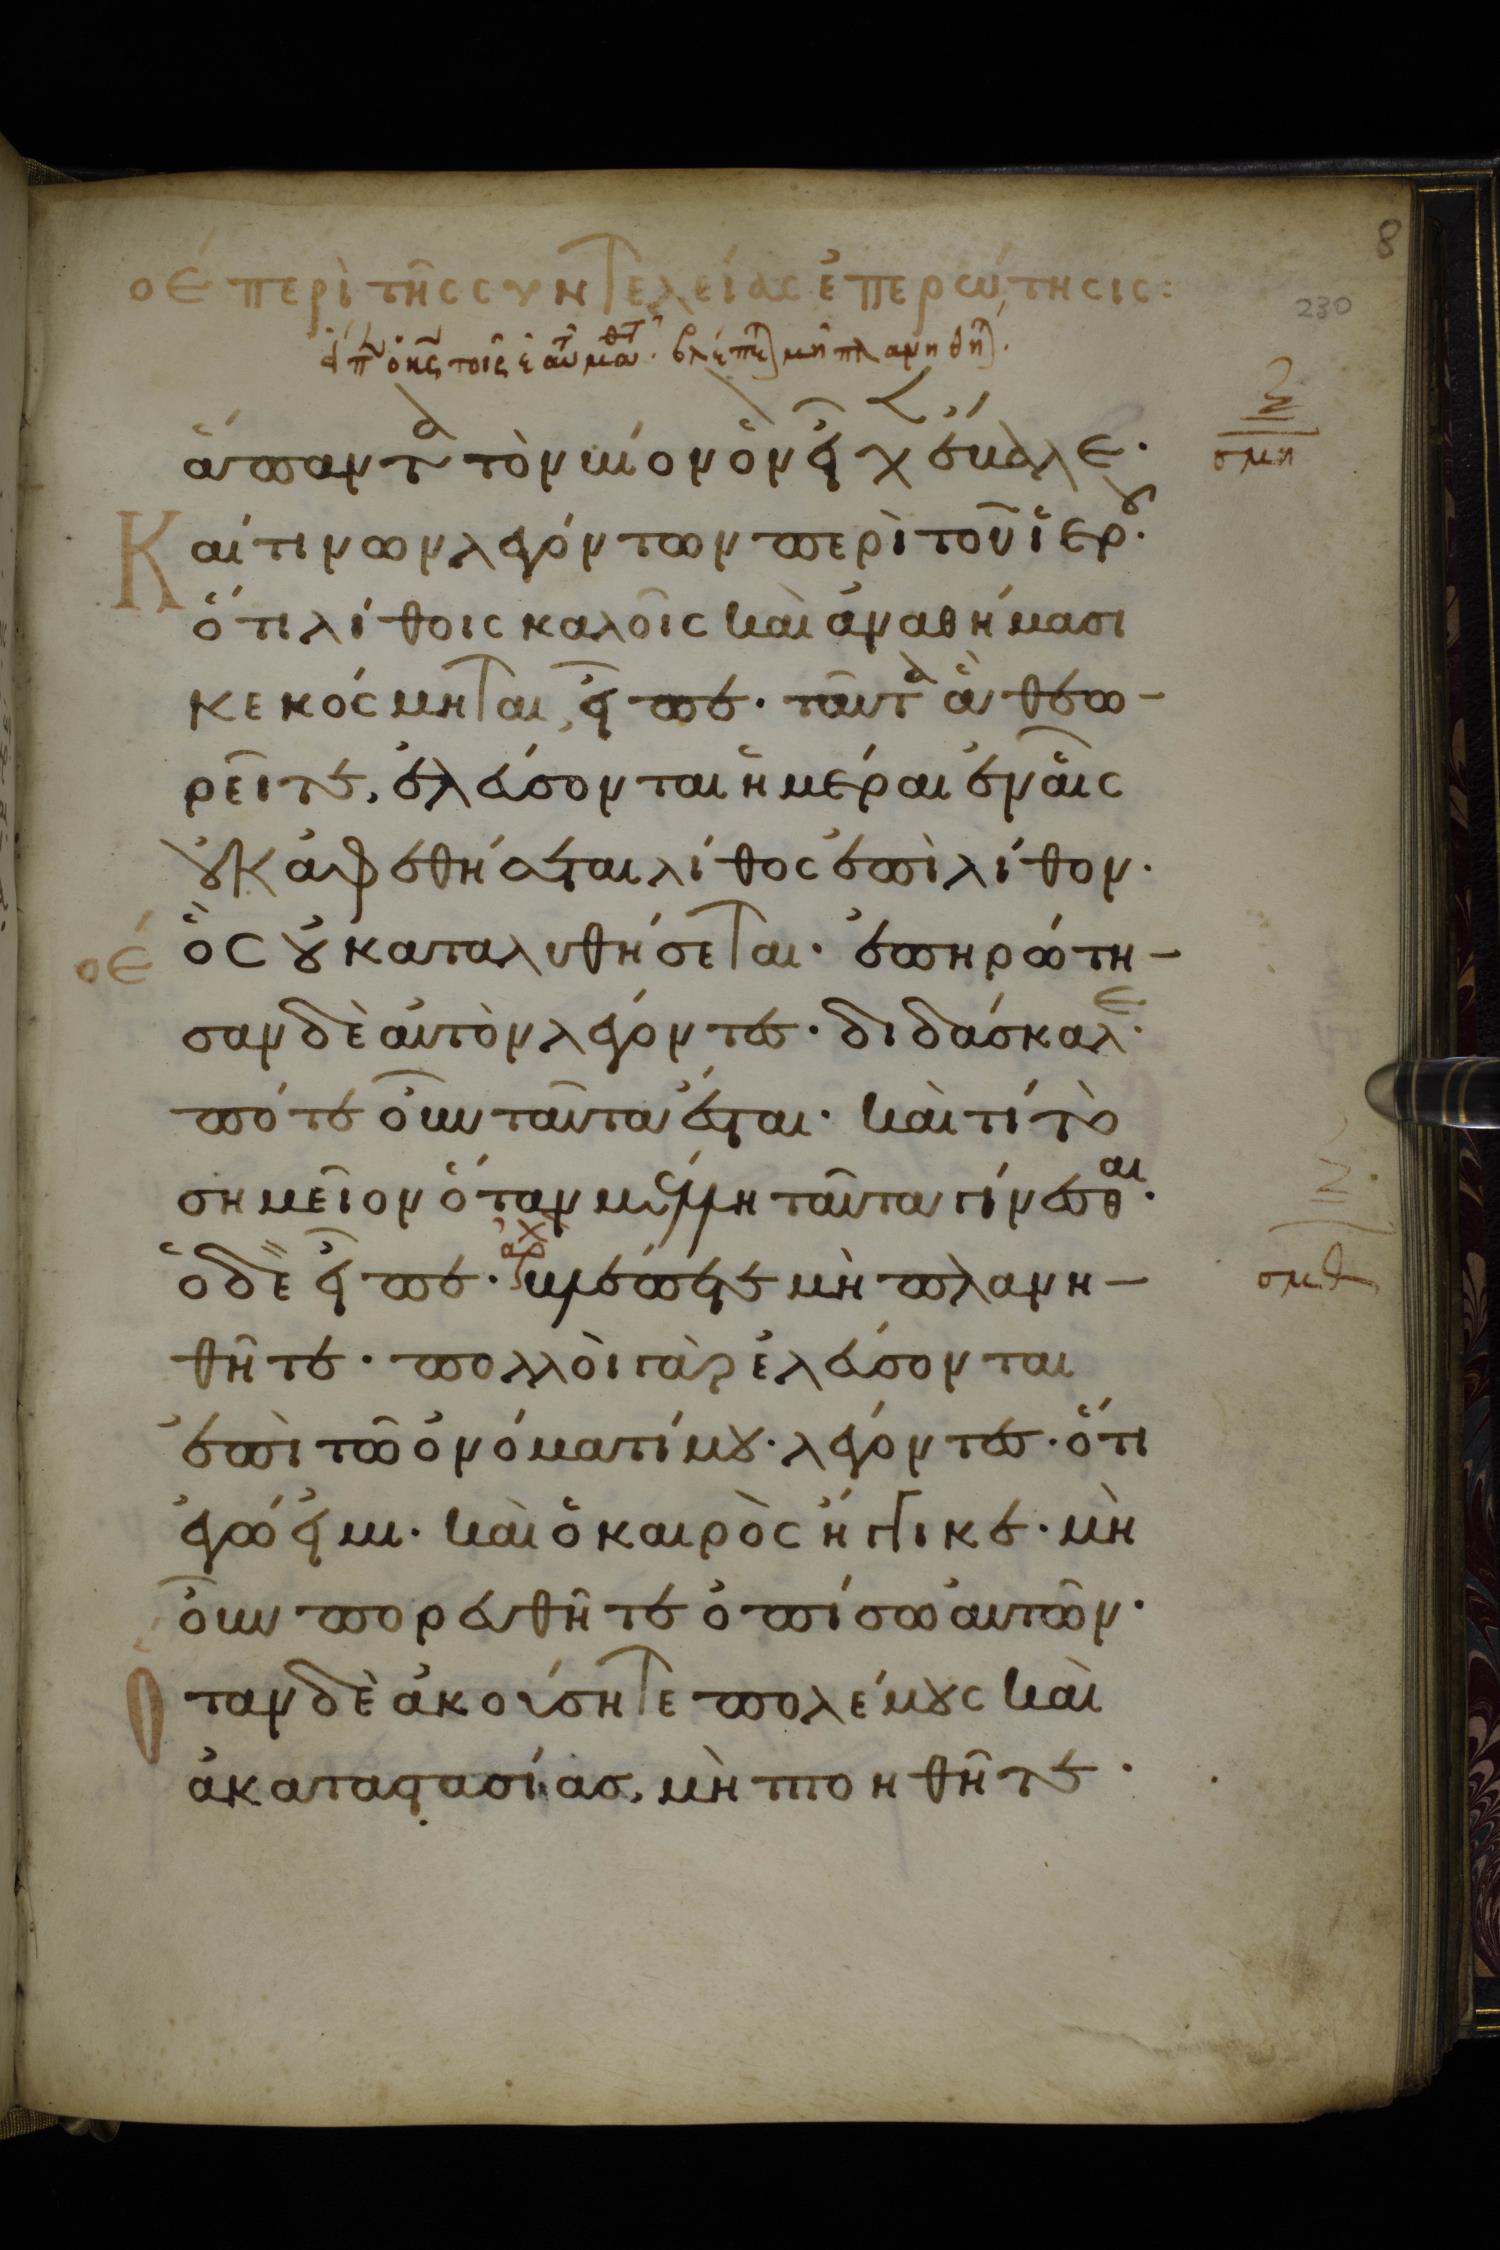 8
οε περὶ τῆς συντελείας ἐπερωτήσις:
230
εἶπεν ὁ κς τοῖς ἑαυτ μαθτ. βλέπετε μὴ πλανηθῆτε.
ἅπαντα τὸν βίον ὃν εἶχεν ἔβαλε.
σμη
Καί τινων λεγόντων περὶ τοῦ ἱεροῦ.
ὅτι λίθοις καλοῖς καὶ ἀναθήμασι
κεκόσμηται, εἶπε. ταῦτα ἃ θεω-
ρεῖτε, ἐλεύσονται ἡμέραι ἐν αἷς
οὐκ ἀφεθήσεται λίθος ἐπὶ λίθον.
οε
ὃς οὐ καταλυθήσεται. ἐπηρώτη-
σαν δὲ αὐτὸν λέγοντες. διδάσκαλε.
πότε οὖν ταῦτα ἔσται. καὶ τί τὸ
σημεῖον ὅταν μέλλη ταῦτα γίνεσθαι.
ὁ δὲ εἶπε. βλέπετε μὴ πλανη-
ἀρχ
σμθ
θῆτε. πολλοὶ γὰρ ἐλεύσονται
ἐπὶ τῶ ὀνόματί μου. λέγοντες. ὅτι
ἐγώ εἰμι. καὶ ὁ καιρὸς ἤγγικε. μὴ
οὖν πορευθῆτε ὀπίσω αὐτῶν.
Ὅταν δὲ ἀκούσητε πολέμους καὶ
ἀκαταστασίας, μὴ πτοηθῆτε.